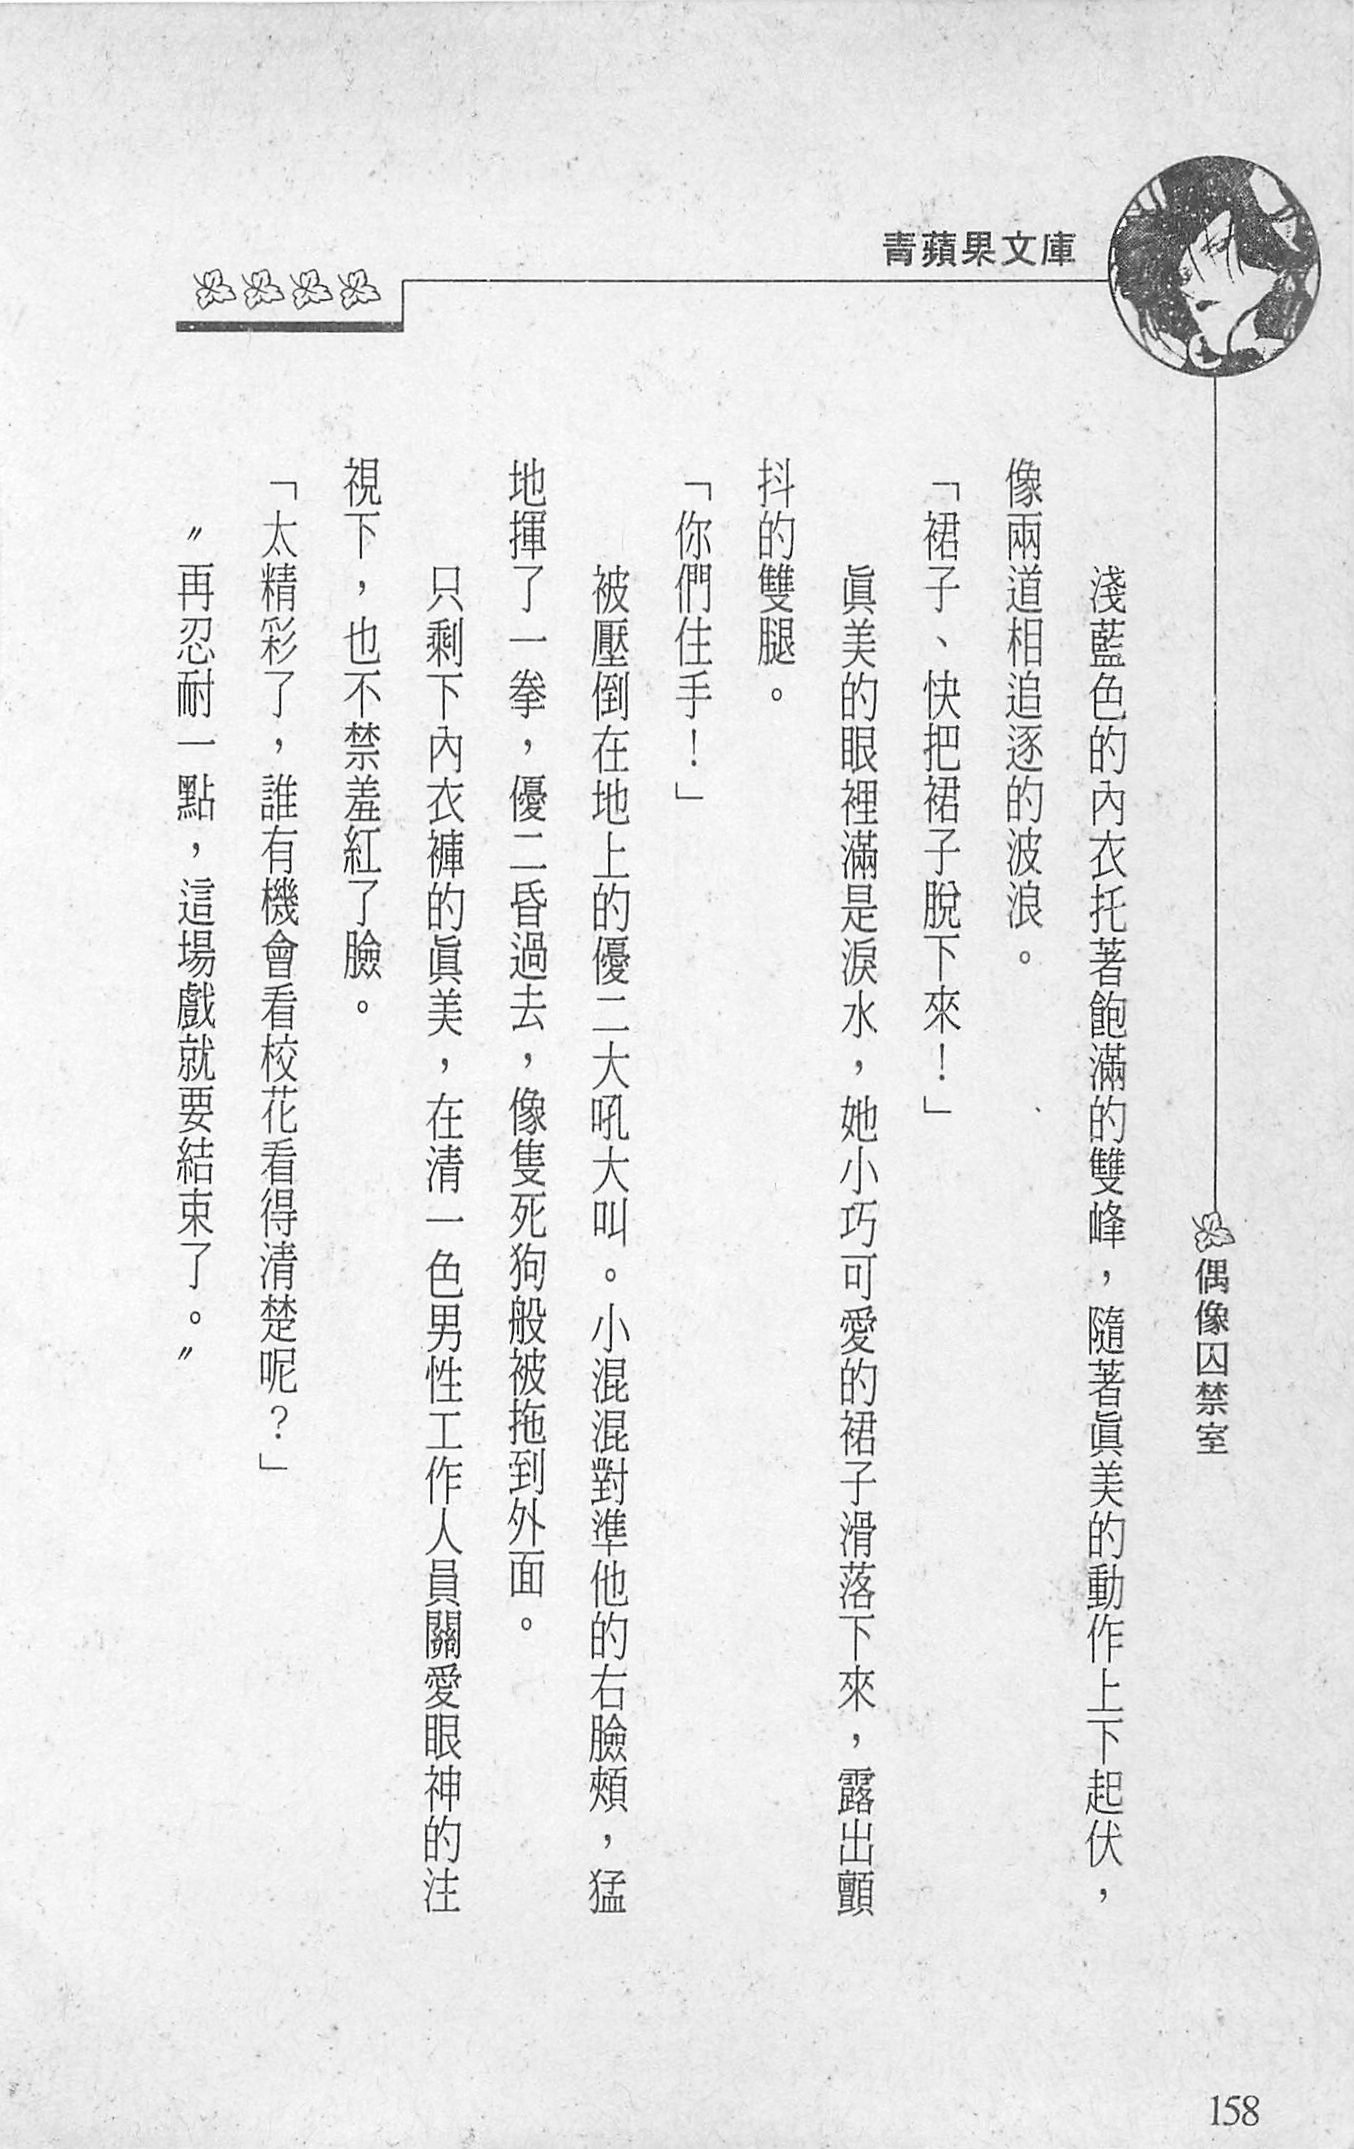 青蘋果文庫
偶像囚禁室
淺藍色的內衣托著飽滿的雙峰，隨著眞美的動作上下起伏，
像兩道相追逐的波浪。
「裙子、快把裙子脫下來！」
眞美的眼裡滿是淚水，她小巧可愛的裙子滑落下來，露出顫
抖的雙腿。
「你們住手！」
被壓倒在地上的優二大吼大叫。小混混對準他的右臉頰，猛
地揮了一拳，優二昏過去，像隻死狗般被拖到外面。
只剩下內衣褲的眞美，在清一色男性工作人員關愛眼神的注
視下，也不禁羞紅了臉。
「太精彩了，誰有機會看校花看得清楚呢？」
〝再忍耐一點，這場戲就要結束了。〞
158